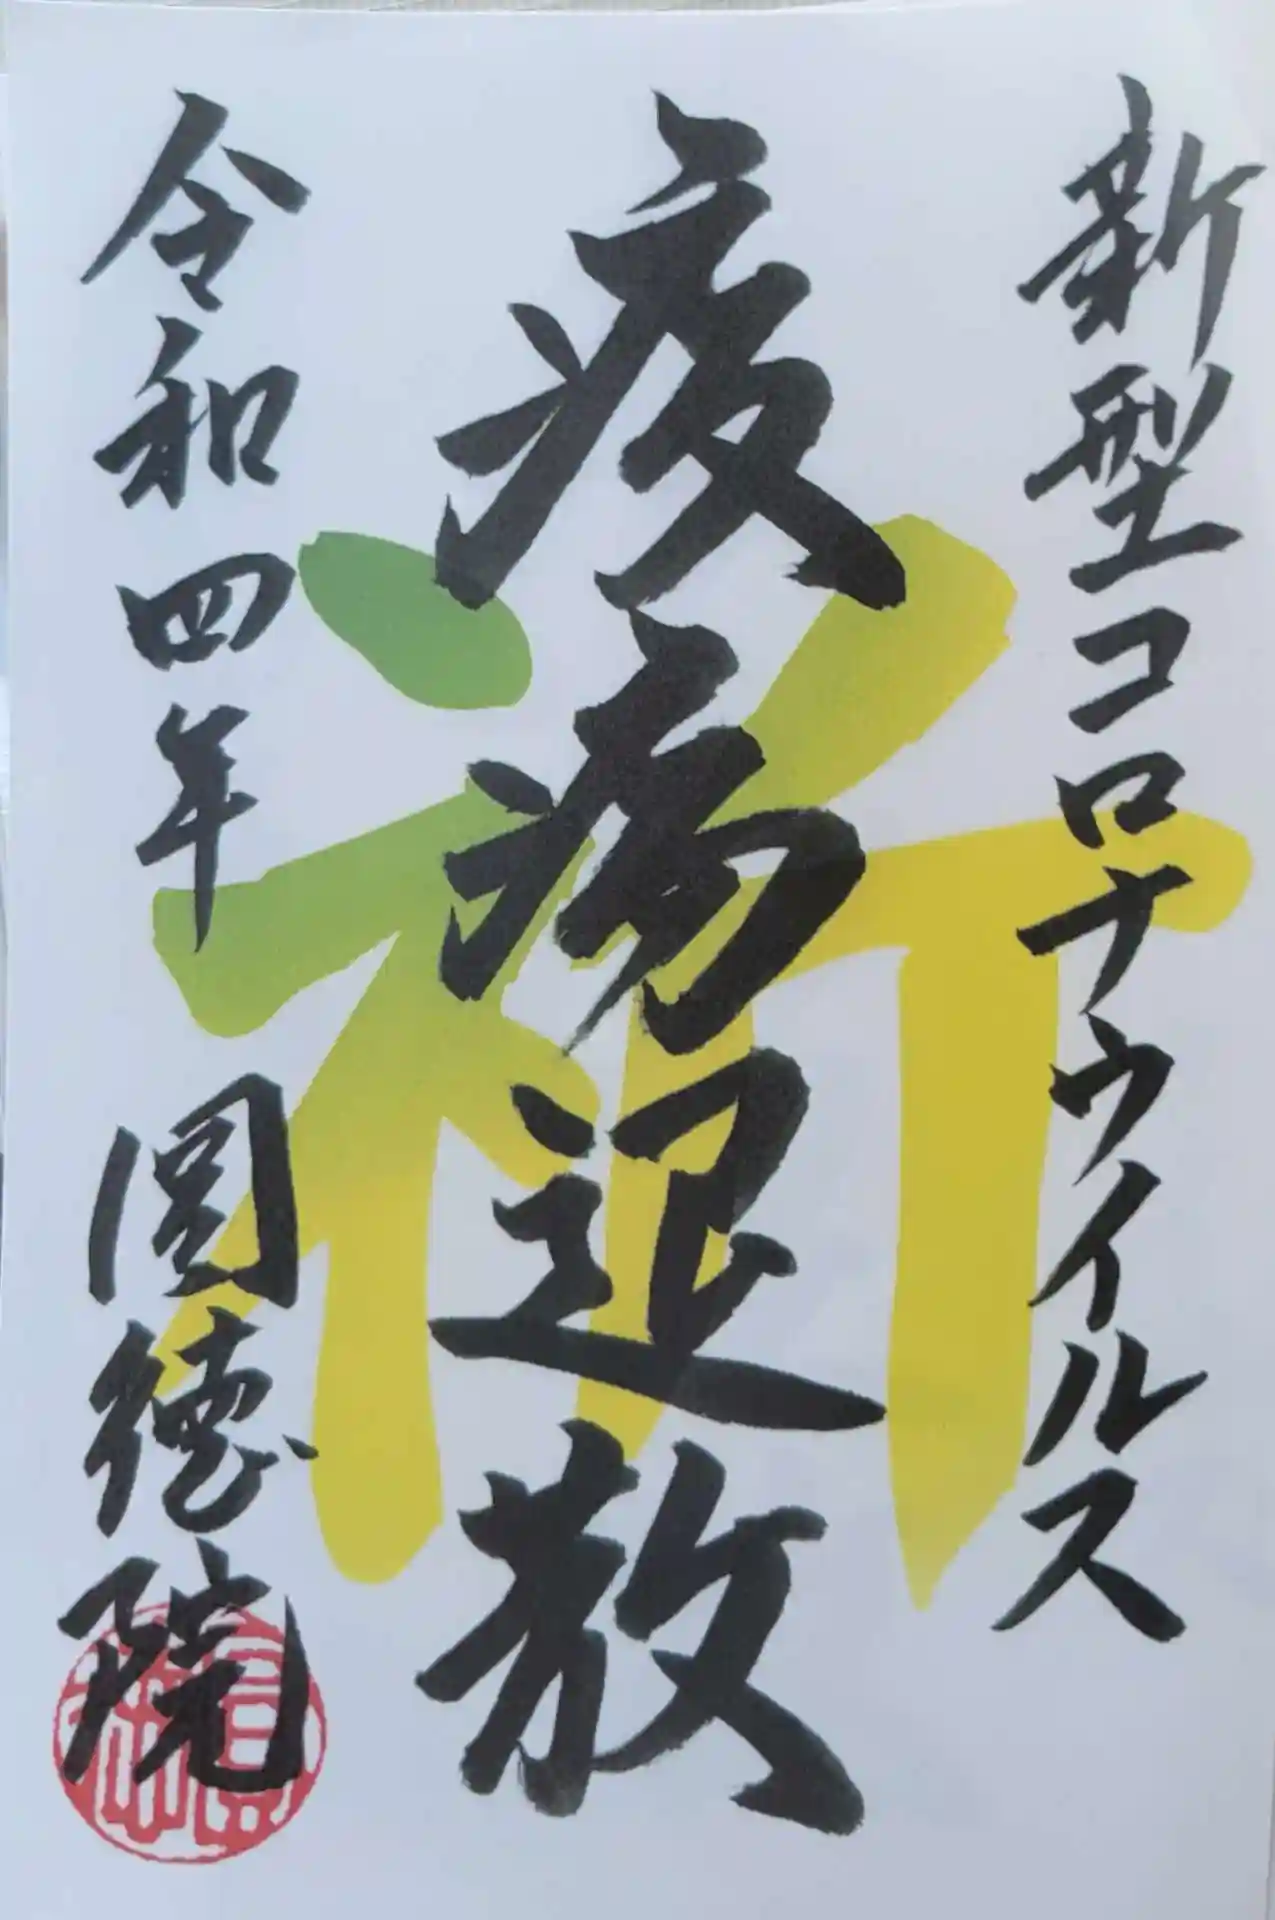 新型コロナウイルス
疫病退散
令和四年 圓徳院
祈